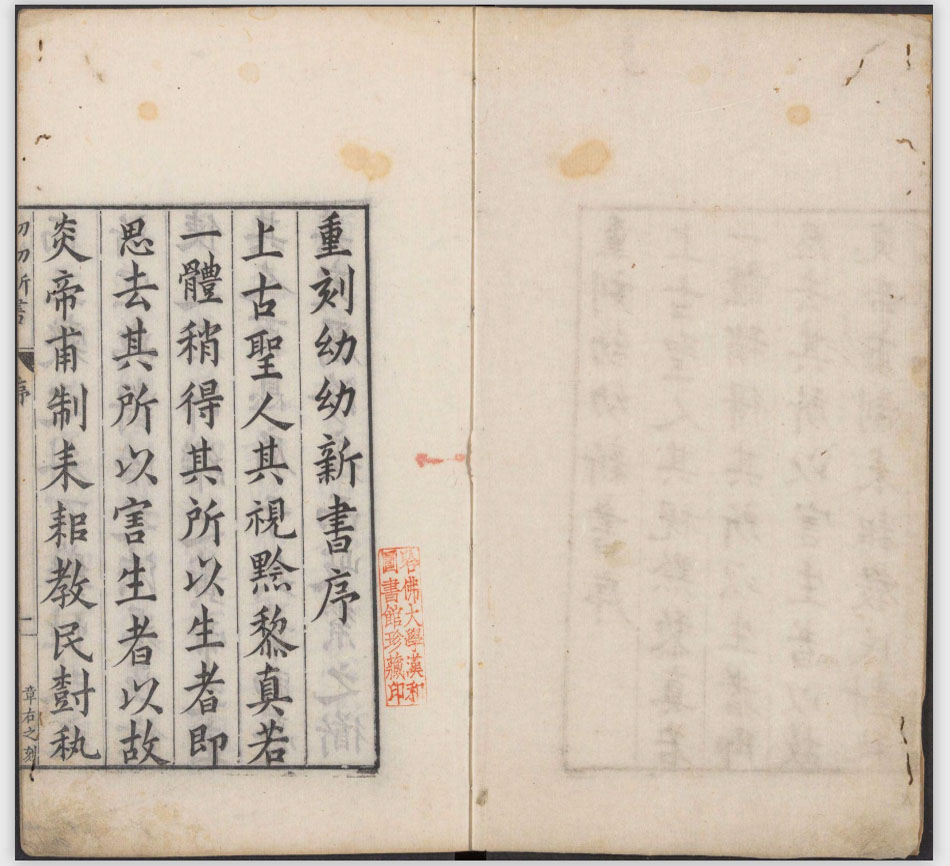 重刻幼幼新書序
上古聖人其視黔黎真若
一體稍得其所以生者即
思去其所以害生者以故
炎帝甫制耒耜教民尌秇
幼幼新書
序
一
章右之刻
哈佛大學漢和
圖書館珍藏印